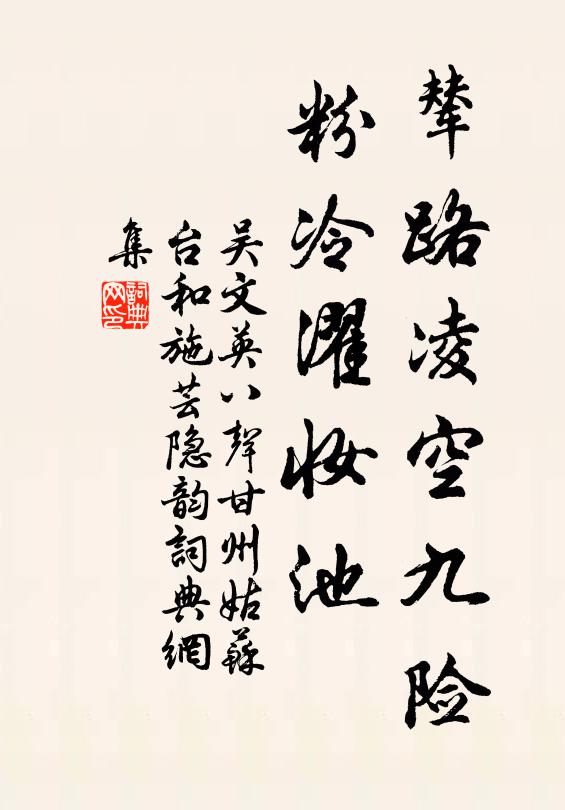 辇路凌空九险
粉冷濯妆池
吴文英八聲甘州姑蘇
台和施芸隐韵詞典網
集
詞典网印